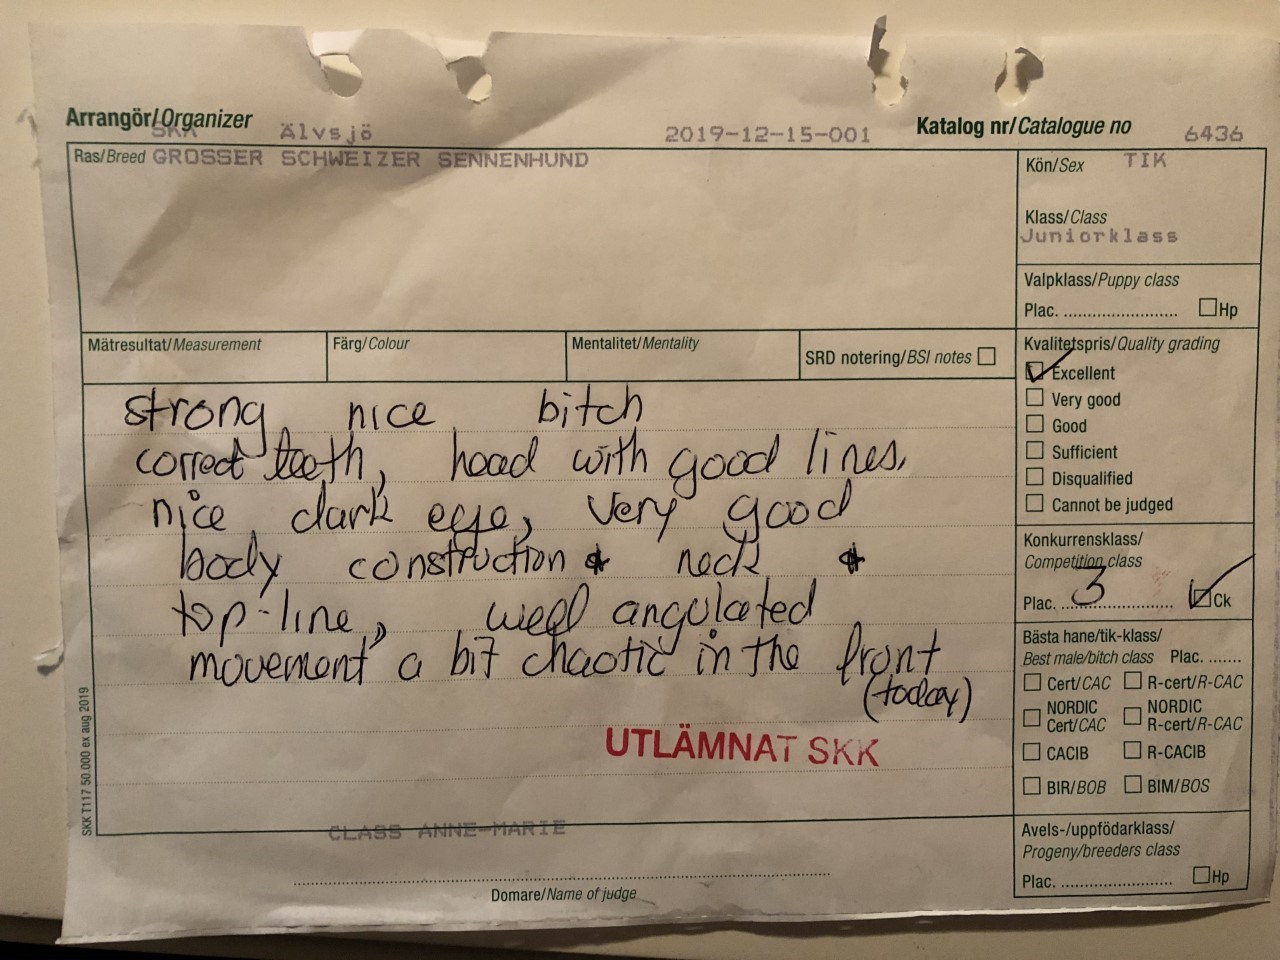 Arrangör/Organizer
SKK Älvsjö 2019-12-15-001 Katalog nr/Catalogue no 6436
Ras/Breed GROSSER SCHWEIZER SENNENHUND
Kön/Sex TIK
Klass/Class
Juniorklass
Valpklass/Puppy class
Plac. ........................ Hp
Mätresultat/Measurement
Färg/Colour
Mentalitet/Mentality
SRD notering/BSI notes
Kvalitetspris/Quality grading
Excellent
Very good
Good
Sufficient
Disqualified
Cannot be judged
strong nice bitch
correct teeth, head with good lines,
nice dark eye, very good
body construction & neck &
top-line, well angulated
movement a bit chaotic in the front
(today)
UTLÄMNAT SKK
Konkurrensklass/
Competition class
Plac. 3 Ck
Bästa hane/tik-klass/
Best male/bitch class Plac. .......
Cert/CAC R-cert/R-CAC
NORDIC Cert/CAC NORDIC R-cert/R-CAC
CACIB R-CACIB
BIR/BOB BIM/BOS
Avels-/uppfödarklass/
Progeny/breeders class
Plac. ....................... Hp
CLASS ANNE-MARIE
Domare/Name of judge
SKK T117 50.000 ex aug 2019